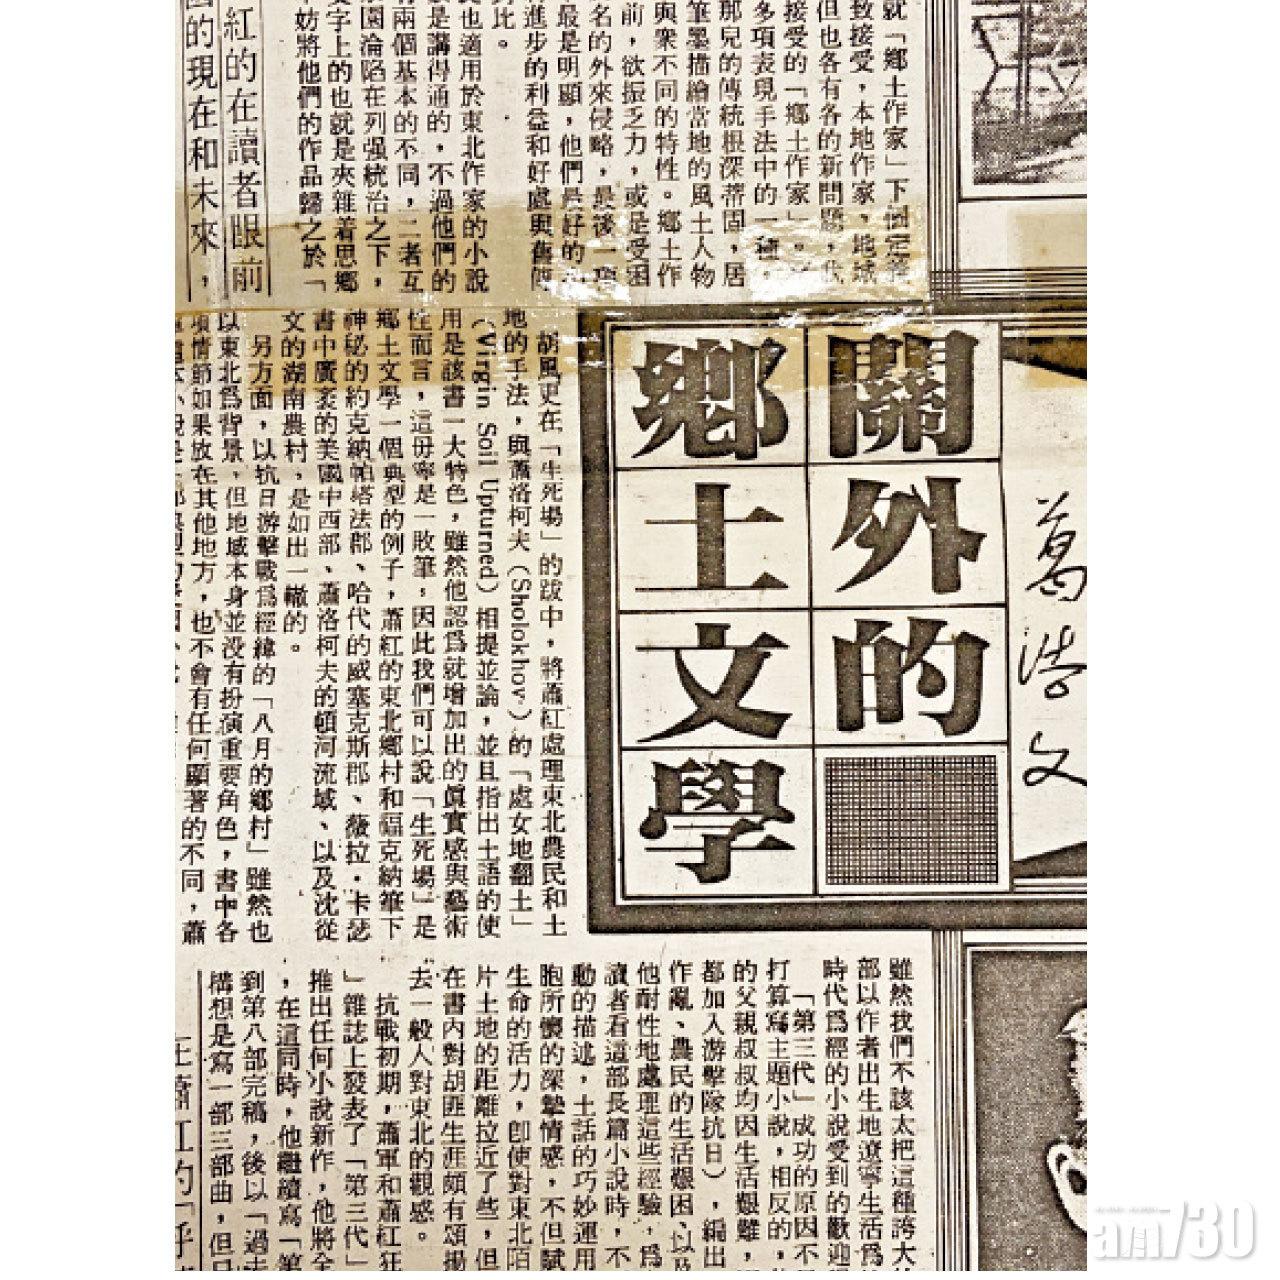 關外的
鄉土文學
葛浩文
就「鄉土作家」下個定
致接受，本地作家，地域
但也各有各的新問題，代
接受的「鄉土作家」。
多項表現手法中的一種，
那兒的傳統根深蒂固，居
筆墨描繪當地的風土人物
與衆不同的特性。鄉土作
前，欲振乏力，或是受困
名的外來侵略，最後一項
最是明顯，他們最好的
進步的利益和好處與舊傳
對比。
也適用於東北作家的小說
是講得通的，不過他們的
有兩個基本的不同，二者互
家園淪陷在列强統治之下，
文字上的也就是夾雜着思鄉
不妨將他們的作品歸之於「
紅的在讀者眼前
國的現在和未來，
胡風更在「生死場」的跋中，將蕭紅處理東北農民和土
地的手法，與蕭洛柯夫（Sholokhov）的「處女地翻土」
（Virgin Soil Upturned）相提並論，並且指出土語的使
用是該書一大特色，雖然他認爲就增加出的眞實感與藝術
性而言，這毋寧是一敗筆，因此我們可以說「生死場」是
鄉土文學一個典型的例子，蕭紅的東北鄉村和福克納筆下
神秘的約克納帕塔法郡、哈代的威塞克斯郡、薇拉·卡瑟
書中廣袤的美國中西部、蕭洛柯夫的頓河流域、以及沈從
文的湖南農村，是如出一轍的。
另方面，以抗日游擊戰爲經緯的「八月的鄉村」雖然也
以東北爲背景，但地域本身並没有扮演重要角色，書中各
項情節如果放在其他地方，也不會有任何顯著的不同，蕭
雖然我們不該太把這種誇大
部以作者出生地遼寧生活爲
時代爲經的小說受到的歡迎
「第三代」成功的原因不
打算寫主題小說，相反的，
的父親叔叔均因生活艱難，
都加入游擊隊抗日），編出
作亂、農民的生活艱困、以及
他耐性地處理這些經驗，爲
讀者看這部長篇小說時，不
動的描述，土話的巧妙運用
胞所懷的深摯情感，不但賦
生命的活力，卽使對東北陌
片土地的距離拉近了些，但
在書内對胡匪生涯頗有頌揚
去一般人對東北的觀感。
抗戰初期，蕭軍和蕭紅
」雜誌上發表了「第三代」
推出任何小說新作，他將全
，在這同時，他繼續寫「第
到第八部完稿，後以「過去
構想是寫一部三部曲，但
am730